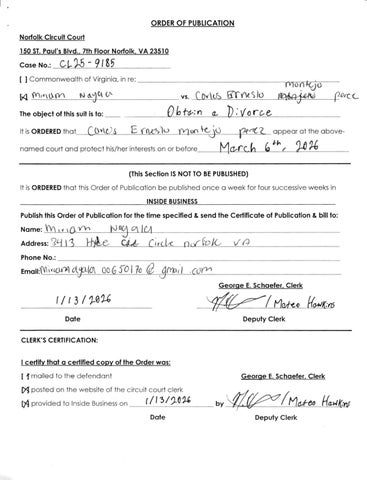 ORDER OF PUBLICATION
Norfolk Circuit Court
150 ST. Paul's Blvd., 7th Floor Norfolk, VA 23510
Case No.: CL25-9185
[ ] Commonwealth of Virginia, in re:
montejo
[x] Miriam vs. Carlos Ernesto perez
The object of this suit is to: Obtain a Divorce
It is ORDERED that Ernesto montejo perez appear at the above-
named court and protect his/her interests on or before March 6th, 2026
(This Section IS NOT TO BE PUBLISHED)
It is ORDERED that this Order of Publication be published once a week for four successive weeks in
INSIDE BUSINESS
Publish this Order of Publication for the time specified & send the Certificate of Publication & bill to:
Name: Miriam
Address: 8413 Circle norfolk VA
Phone No.:
Email: @gmail.com
George E. Schaefer, Clerk
1/13/2026 / Mateo Hawkins
Date Deputy Clerk
CLERK'S CERTIFICATION:
I certify that a certified copy of the Order was:
[ ] mailed to the defendant George E. Schaefer, Clerk
[x] posted on the website of the circuit court clerk
[x] provided to Inside Business on 1/13/2026 by / Mateo Hawkins
Date Deputy Clerk